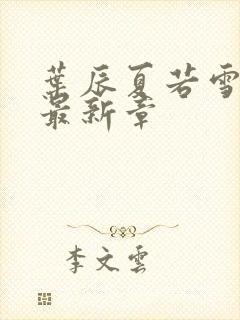 葉辰夏若雪
最新章
李文雲